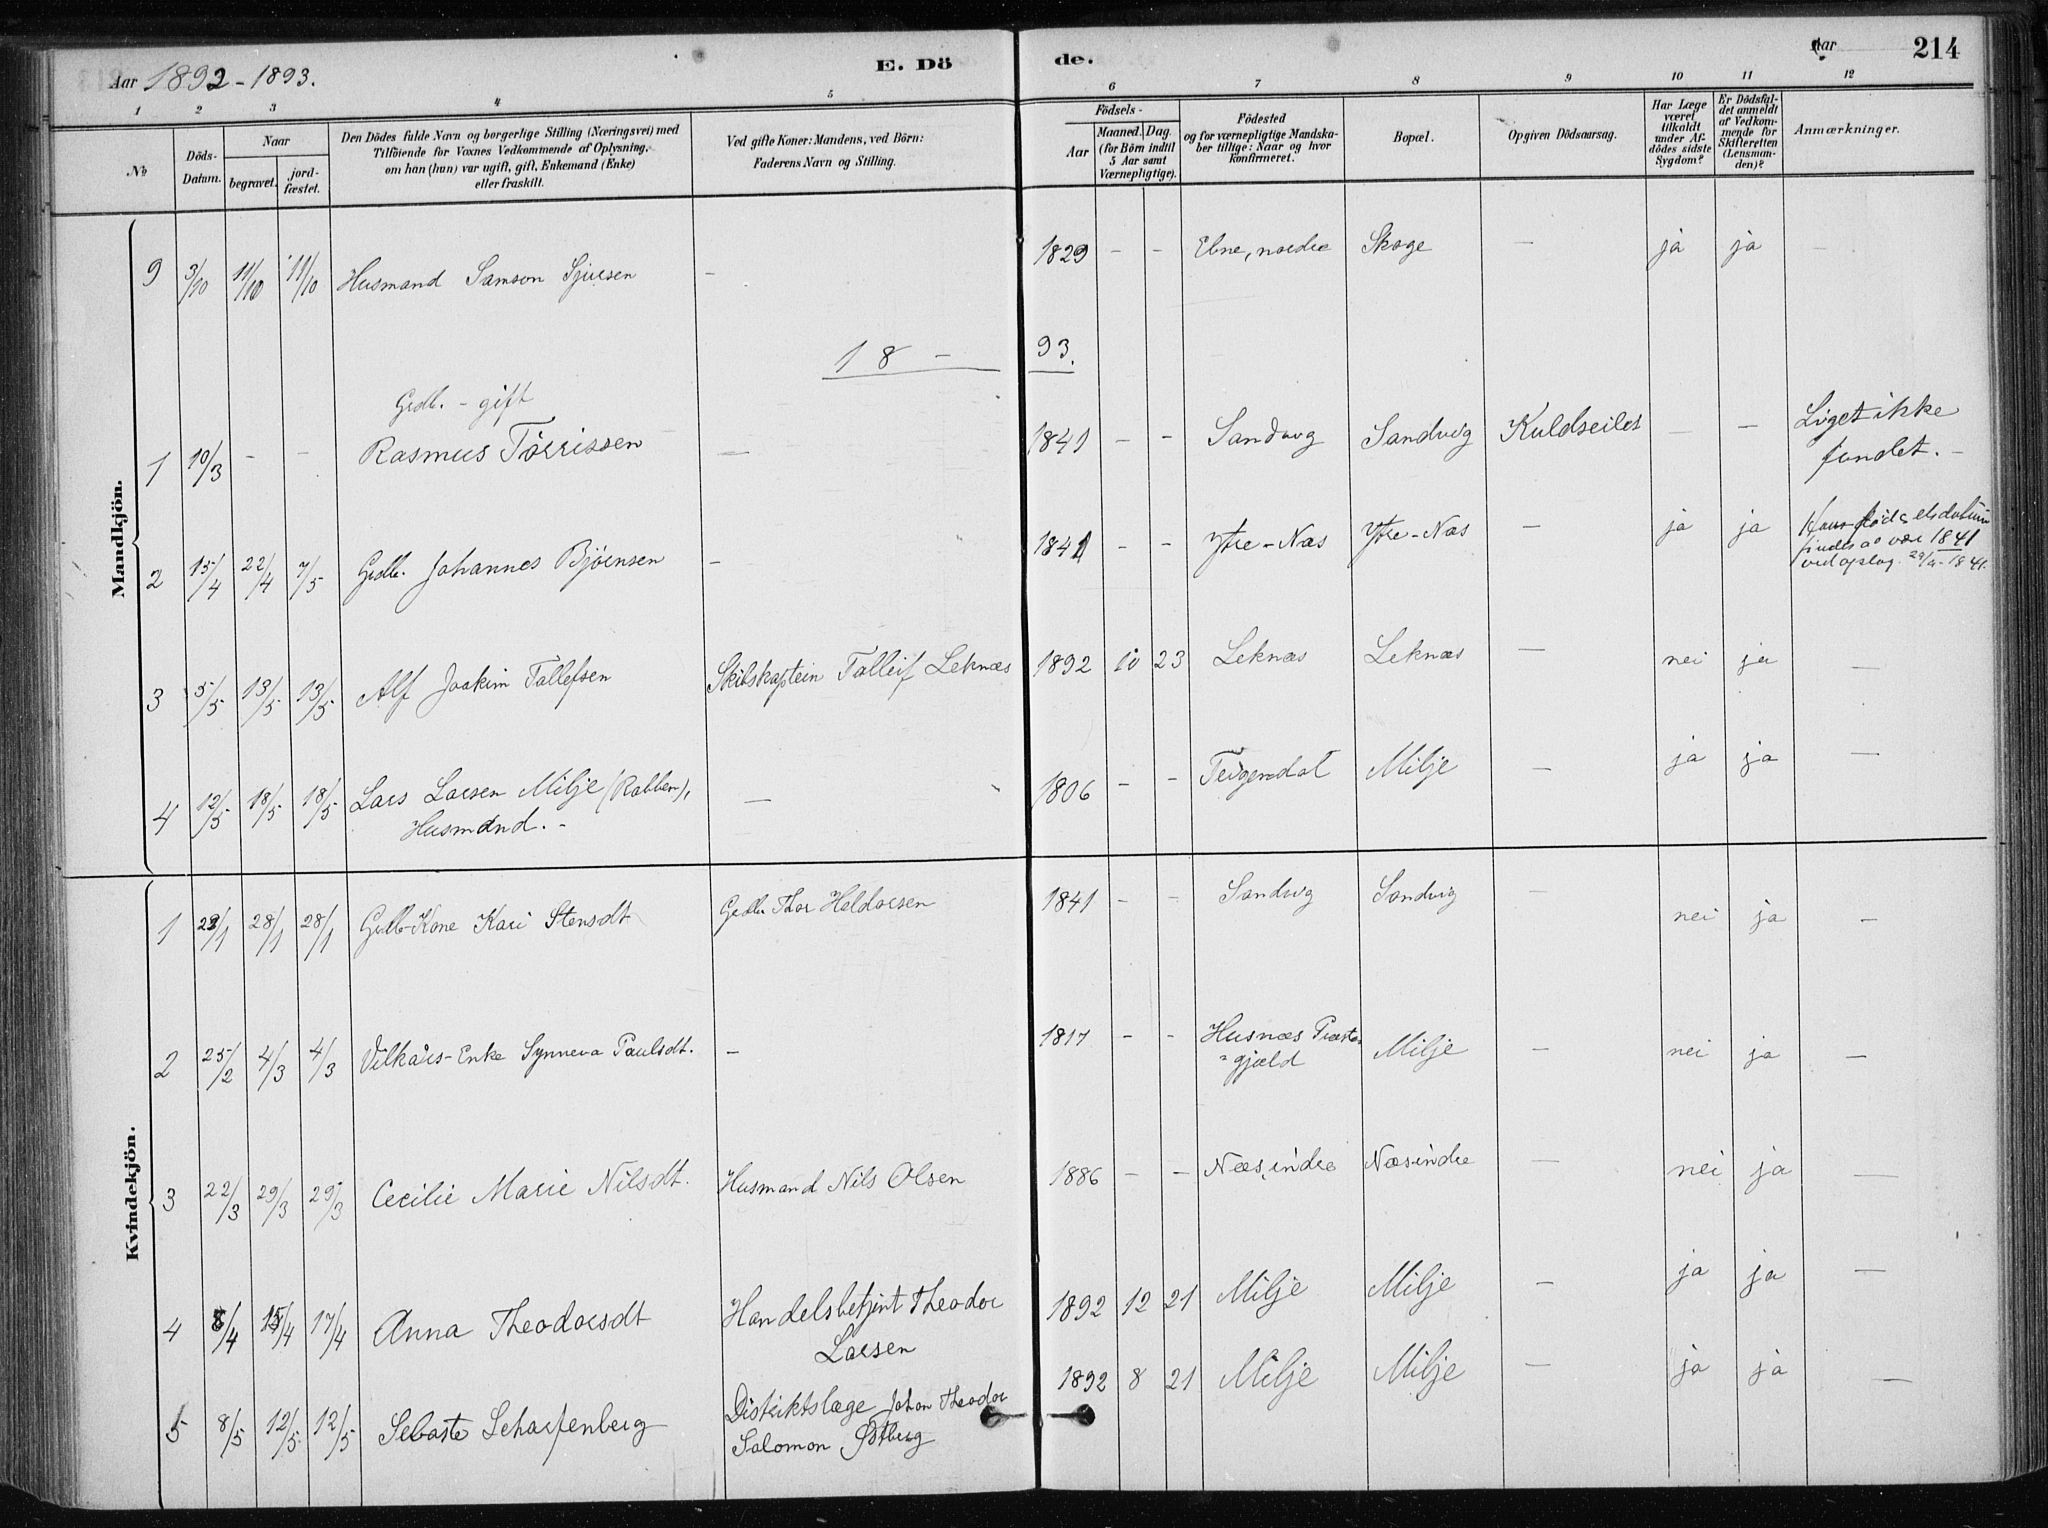 Aar 1892-1893.
E. Dö
de.
Aar
214
1 2 3 4 5 6 7 8 9 10 11 12
No
Döds-
Datum.
Naar
begravet.
jord-
fæstet.
Den Dödes fulde Navn og borgerlige Stilling (Næringsvei) med
Tilföiende for Voxnes Vedkommende af Oplysning,
om han (hun) var ugift, gift, Enkemand (Enke)
eller fraskilt.
Ved gifte Koner: Mandens, ved Börn:
Faderens Navn og Stilling.
Födsels-
Aar
Maaned. Dag.
(for Börn indtil
5 Aar samt
Værnepligtige).
Födested
og for værnepligtige Mandska-
ber tillige: Naar og hvor
konfirmeret.
Bopæl.
Opgiven Dödsaarsag.
Har Læge
været
tilkaldt
under Af-
dödes sidste
Sygdom?
Er Dödsfal-
det anmeldt
af Vedkom-
mende for
Skifteretten
(Lensman-
den)?
Anmærkninger.
Mandkjön.
9 3/10 11/10 11/10 Husmand Samson Sjursen - 1829 - - Ebne, nordre Skoge - ja ja -
18 - 93.
Grdb. - gift
1 10/3 - - Rasmus Tørrissen - 1841 - - Sandvig Sandvig Kuldseilet - - Liget ikke
fundet. -
2 15/4 22/4 7/5 Grdb. Johannes Bjørnsen - 1841 - - Ytre-Næs Ytre-Næs - ja ja Hans fødselsdatum
findes at være 1841
ved opslag.
3 5/5 13/5 13/5 Alf Joakim Tollefsen Skibskaptein Tolleif Leknæs 1892 10 23 Leknæs Leknæs - nei ja -
4 12/5 18/5 18/5 Lars Larsen Milje (Rabben), - 1806 - - Teigendal Milje - ja ja -
Husmand. -
Kvindekjön.
1 23/1 28/1 28/1 Grdb-Kone Kari Stensdt Grdbr Thor Haldorsen 1841 - - Sandvig Sandvig - nei ja -
2 25/2 4/3 4/3 Vilkårs-Enke Synneva Paulsdt. - 1817 - - Husnæs Præste-
gjæld Milje - nei ja -
3 22/3 29/3 29/3 Cecilie Marie Nilsdt. Husmand Nils Olsen 1886 - - Næs, indre Næs indre - nei ja -
4 8/4 15/4 17/4 Anna Theodorsdt Handelsbetjent Theodor
Larsen 1892 12 21 Milje Milje - ja ja -
5 8/5 12/5 12/5 Sebaste Scharfenberg Distriktslæge Johan Theodor
Salomon Østberg 1892 8 21 Milje Milje - ja ja -